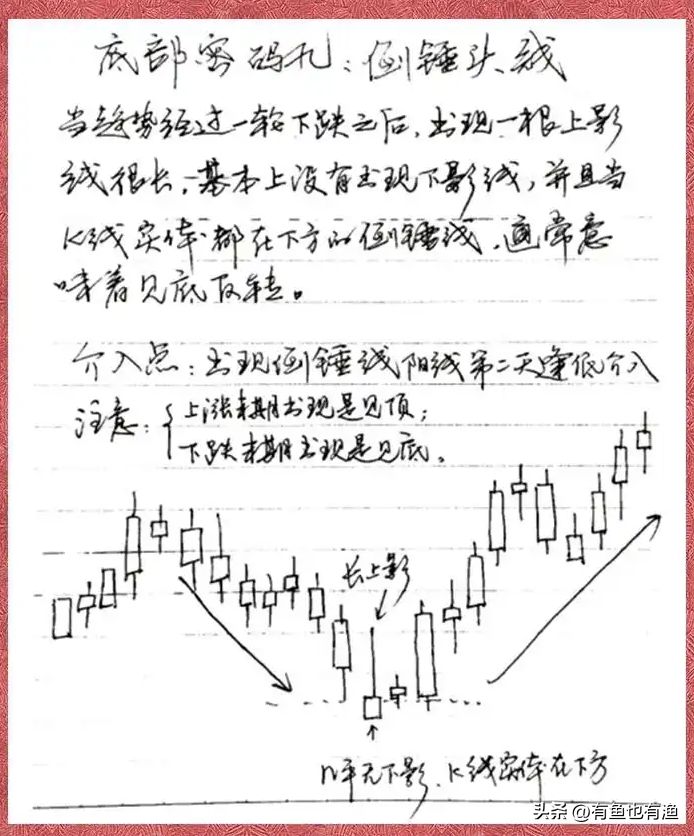 底部密码九：倒锤头线
当趋势经过一轮下跌之后，出现一根上影
线很长，基本上没有出现下影线，并且当
K线实体都在下方的倒锤线，通常意
味着见底反转。
介入点：出现倒锤线阳线第二天逢低介入
注意：{上涨末期出现是见顶；
下跌末期出现是见底。
长上影
几乎无下影、K线实体在下方
头条 @有鱼也有渔